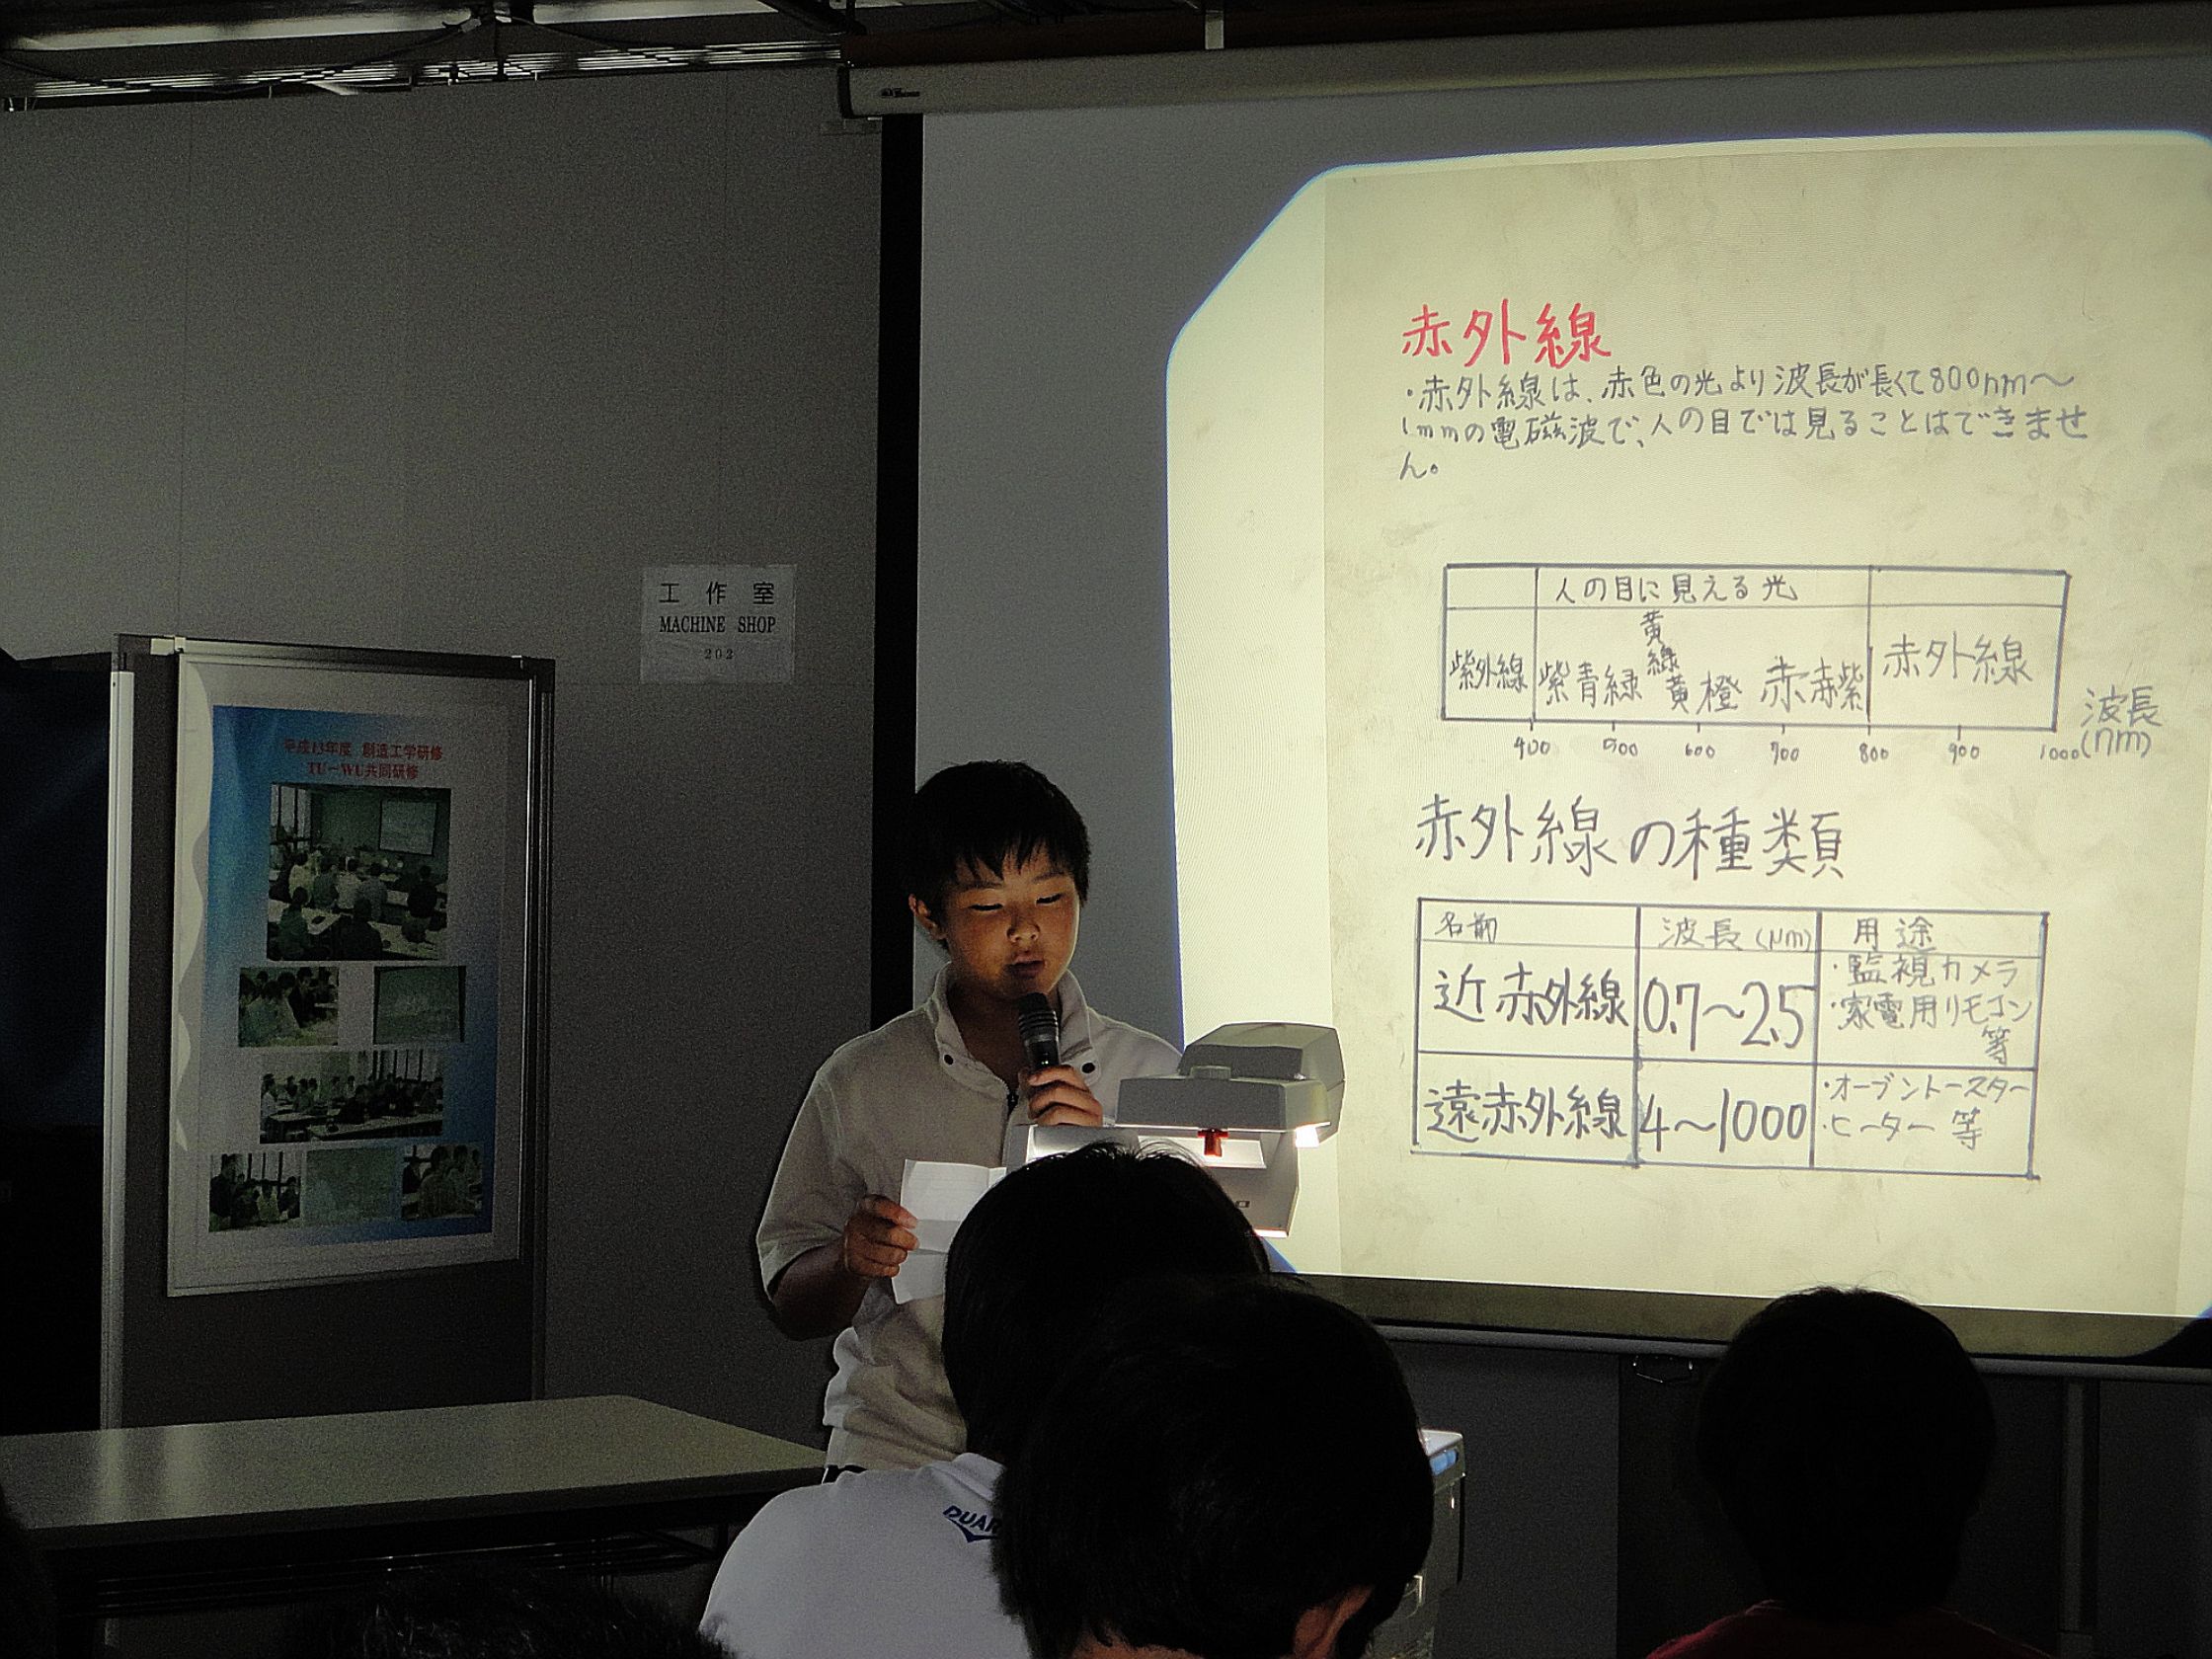 赤外線
・赤外線は、赤色の光より波長が長くて800nm〜
1mmの電磁波で、人の目では見ることはできませ
ん。
人の目に見える光
紫外線 紫 青 緑 黄緑 黄 橙 赤 赤紫 赤外線
400 500 600 700 800 900 1000
波長
(nm)
赤外線の種類
名前 波長(μm) 用途
近赤外線 0.7〜2.5 ・監視カメラ
・家電用リモコン
等
遠赤外線 4〜1000 ・オーブントースター
・ヒーター 等
工作室
MACHINE SHOP
202
平成13年度 創造工学研修
TU-WU共同研修